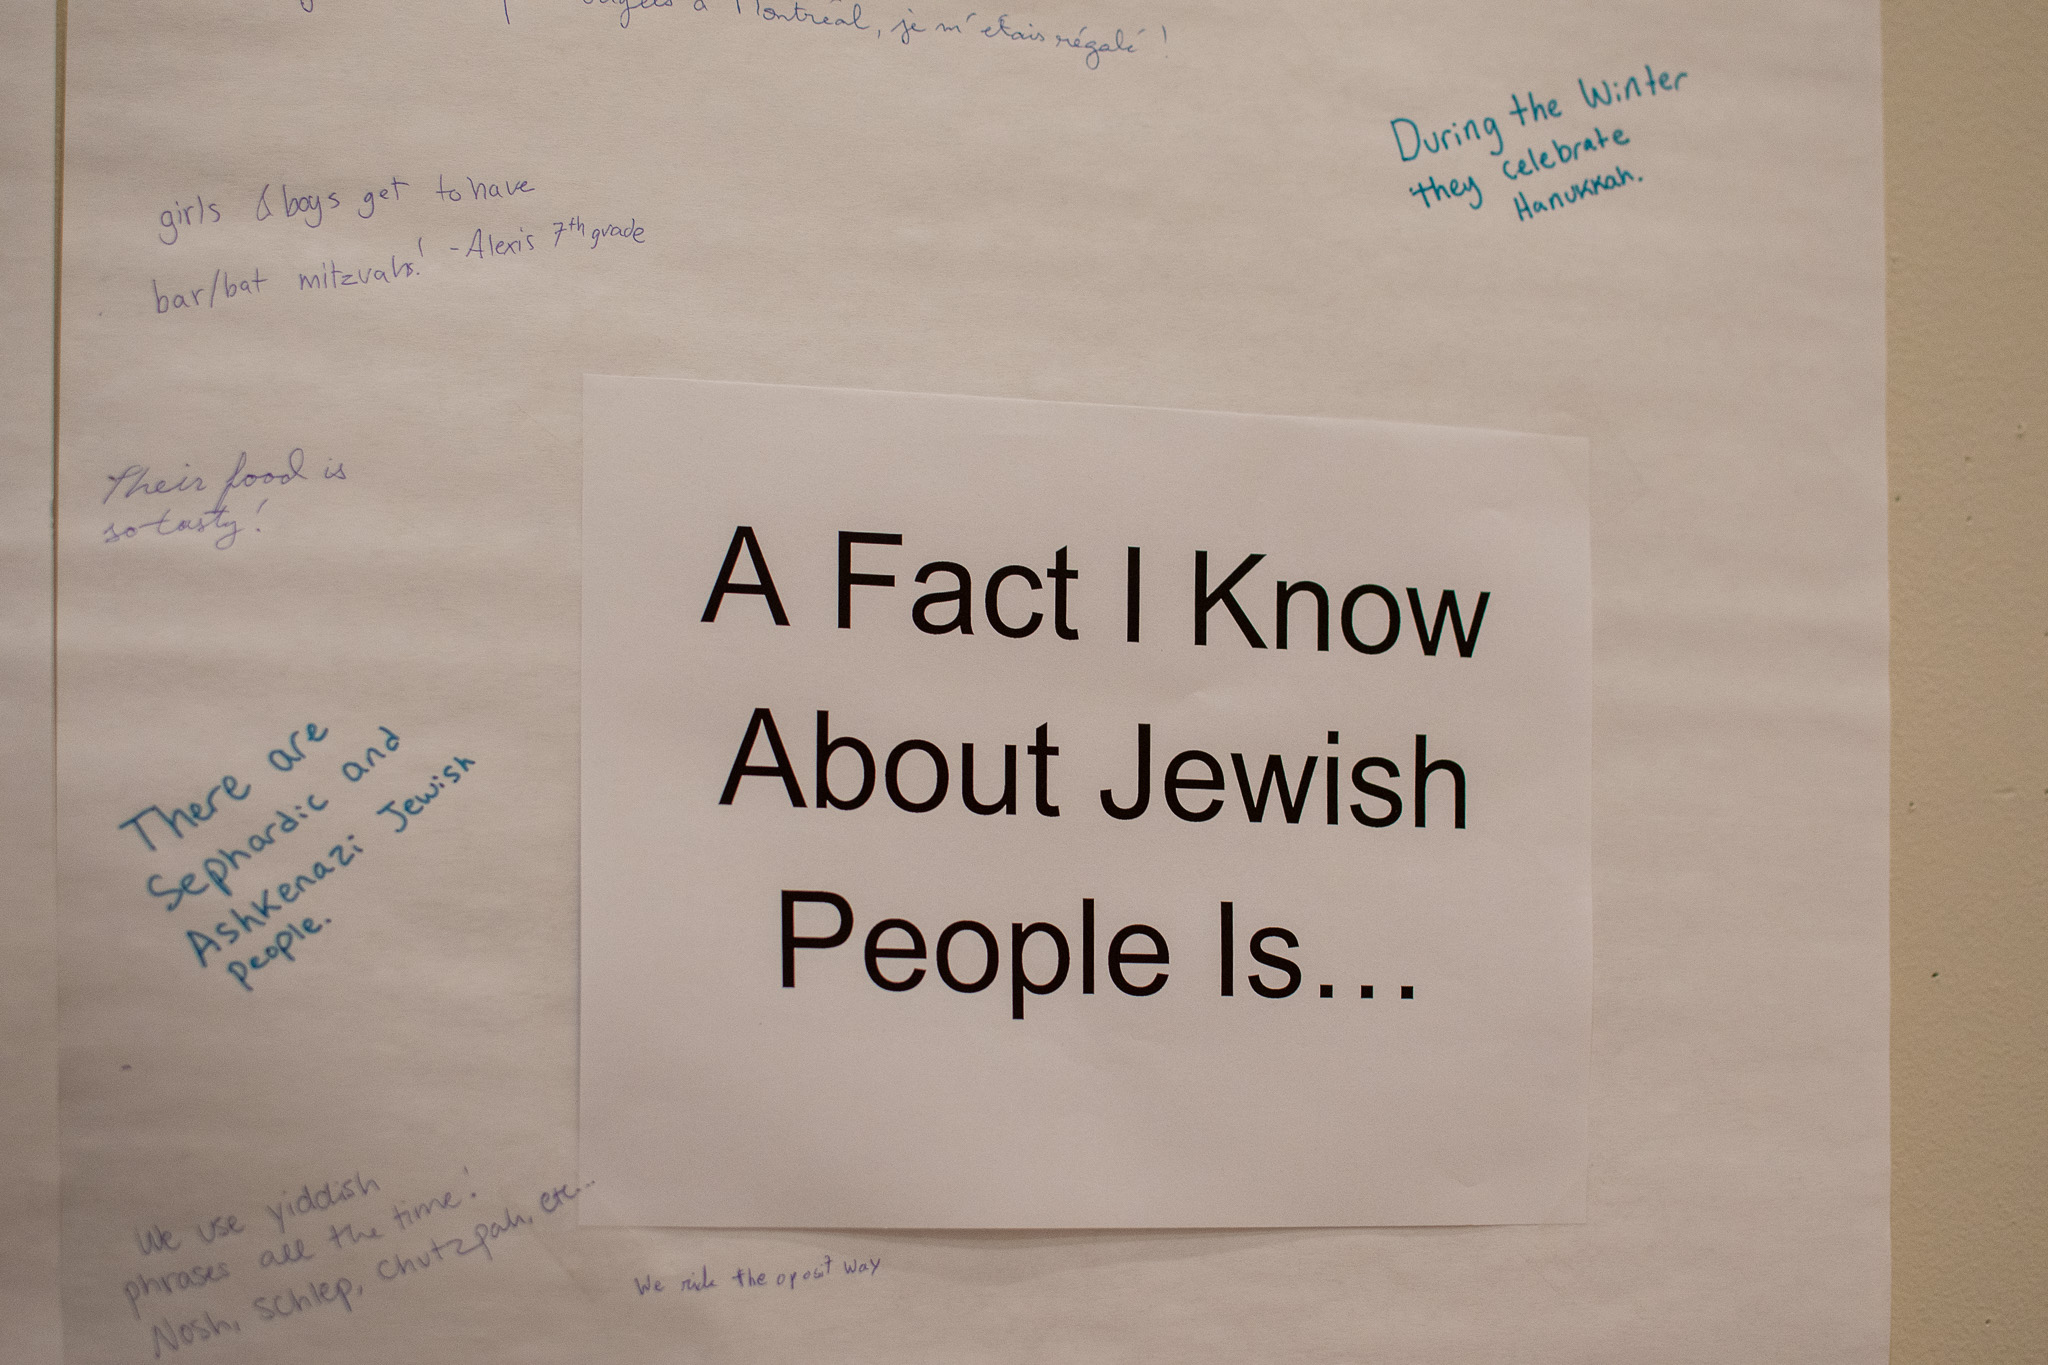 à Montréal, je m'étais régalé!
During the Winter
they celebrate
Hanukkah.
girls & boys get to have
bar/bat mitzvahs! -Alexis 7th grade
Their food is
so tasty!
A Fact I Know
About Jewish
People Is...
There are
Sephardic and
Ashkenazi Jewish
people.
We use yiddish
phrases all the time!
Nosh, schlep, chutzpah, etc...
We ride the oposit way